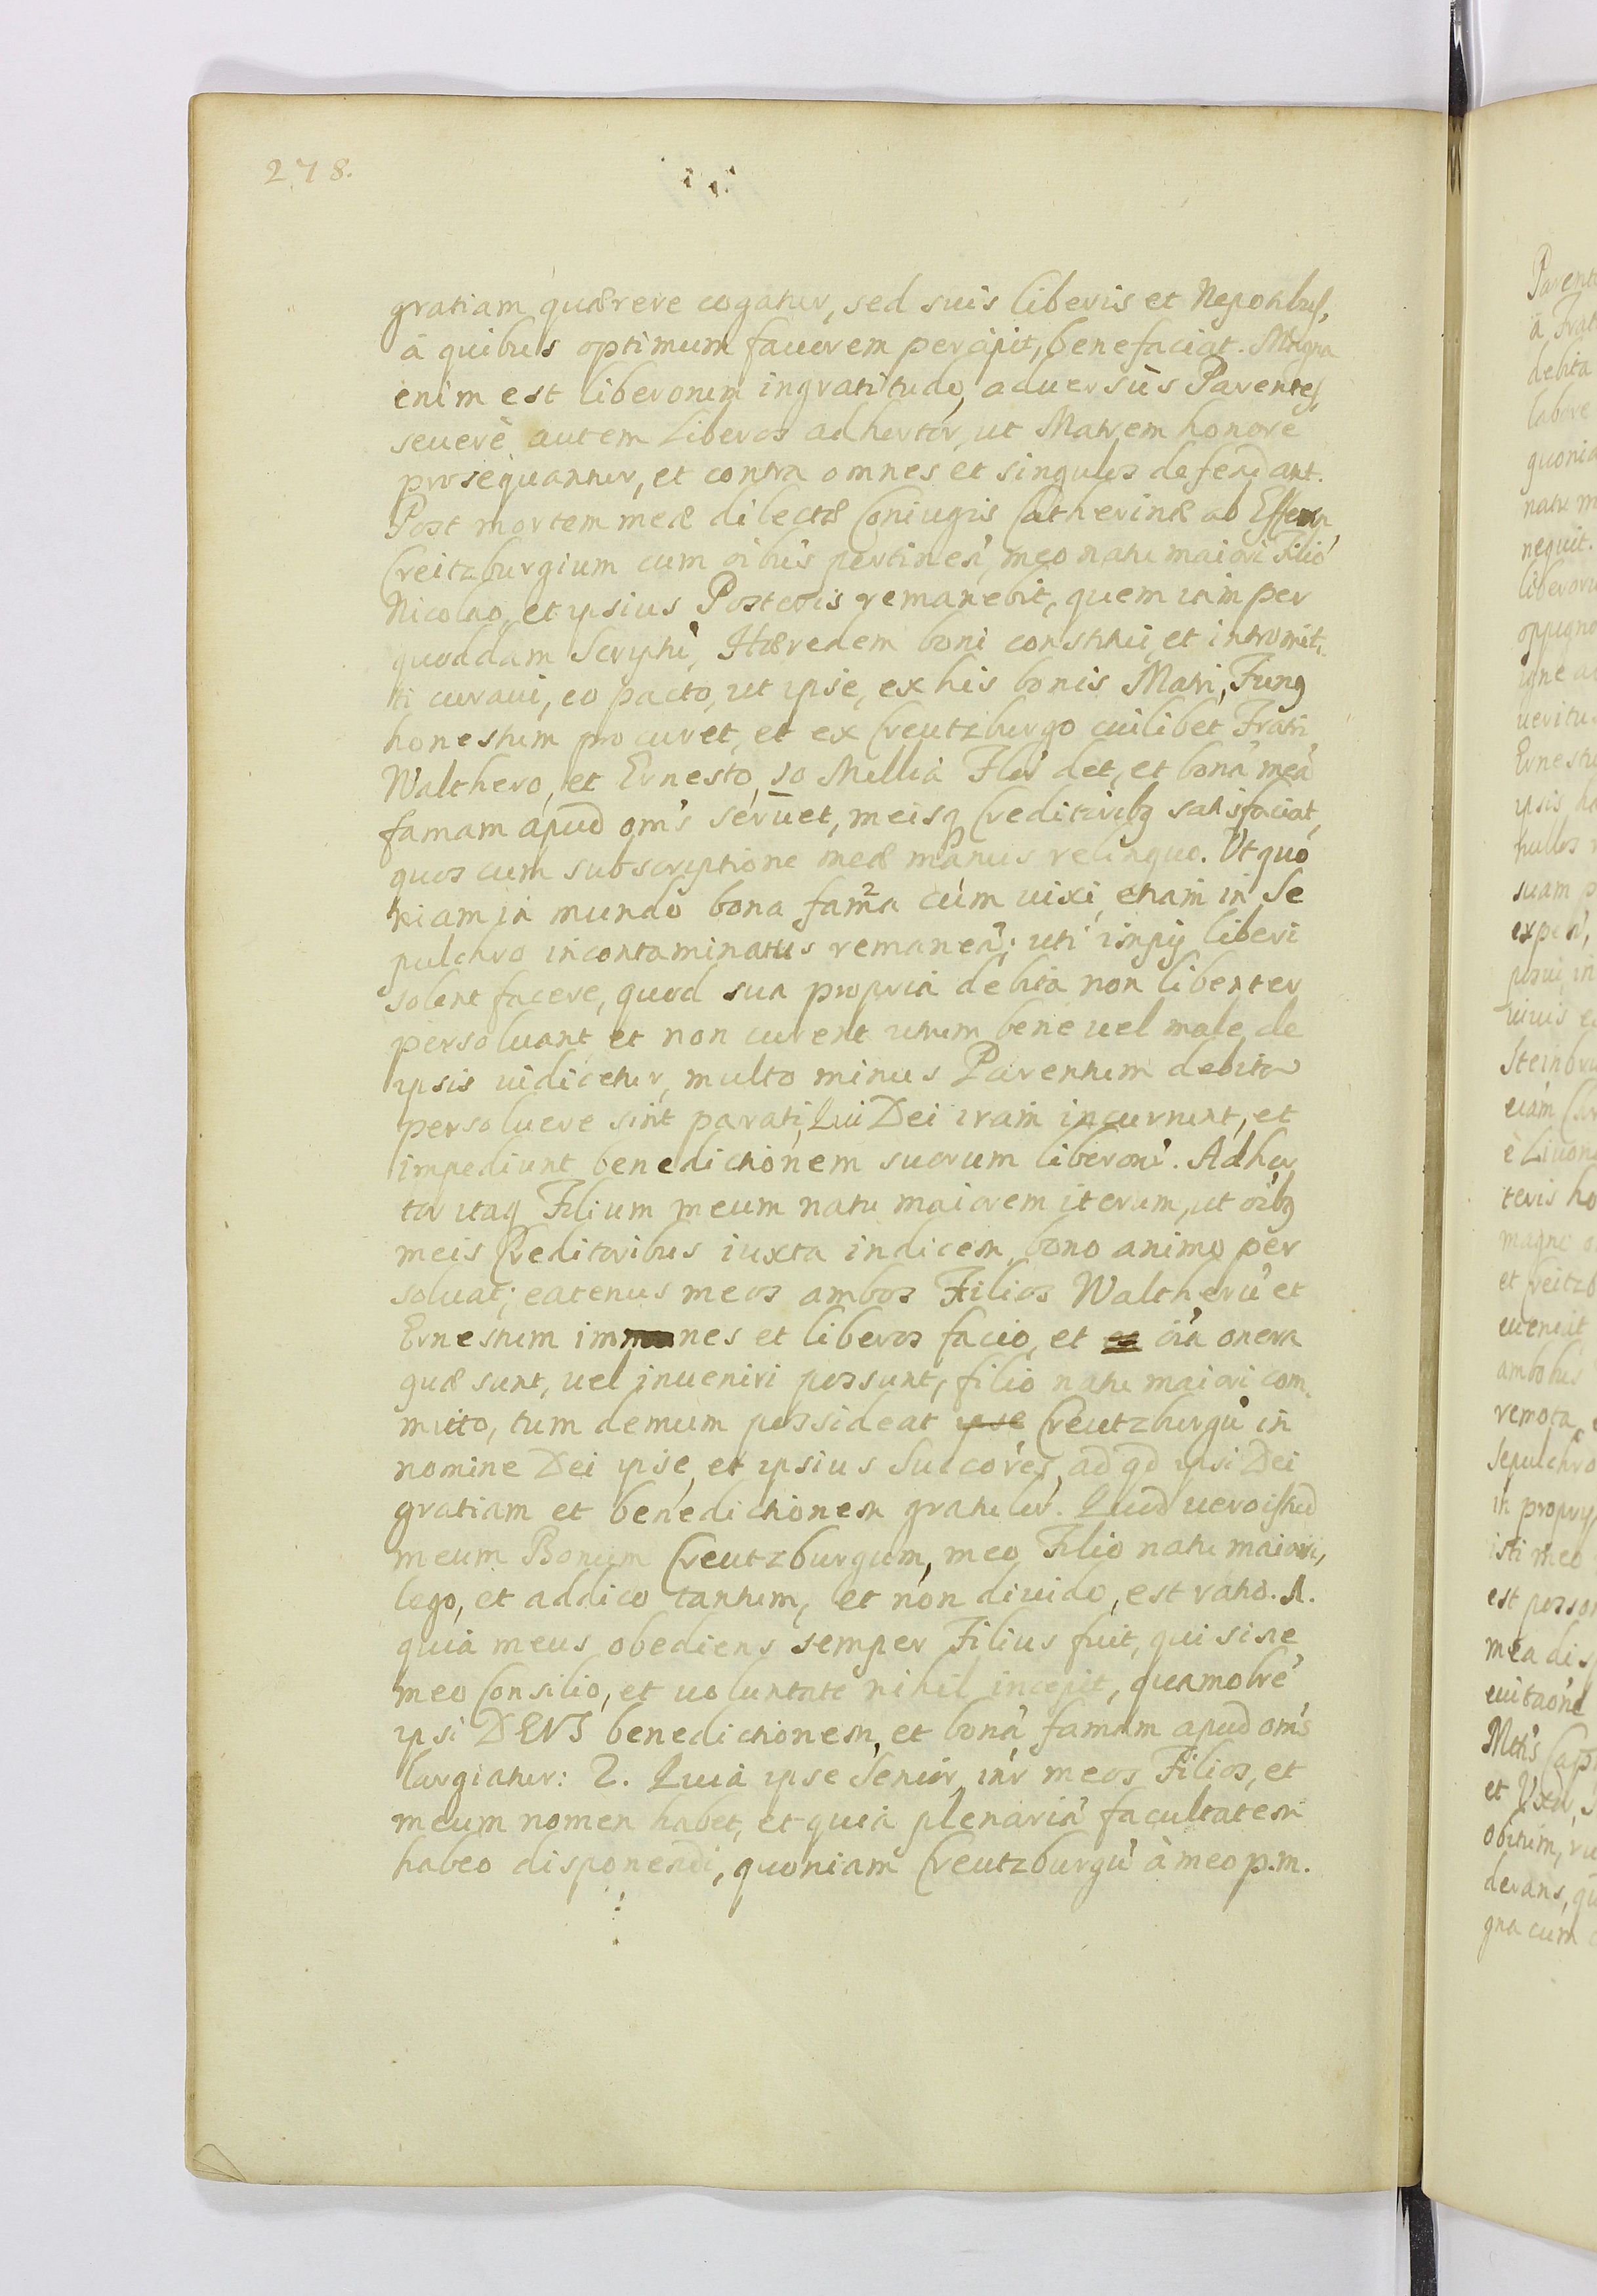 278.
gratiam quærere cogatur, sed suis liberis et Nepotibus,
à quibus optimum fauorem percipit, benefaciat. Magna
enim est liberorum ingratitudo, aduersùs Parentes,
seuerè autem Liberos adhortor, ut Matrem honore
prosequantur, et contra omnes et singulos defendant.
Post mortem meæ dilectæ Coniugis Catherinæ ab
Creitzburgium cum oibùs pertinen', meo natu maiori Filio
Nicolao, et ipsius Posteris remanebit, quem iam per
quoddam Scriptu', Hæredem boni constitui, et intromit,
ti curaui, eo pacto, ut ipse, ex his bonis Matri, Funq
honestum procuret, et ex Creutzburgo cuilibet Fratri
Walthero, et Ernesto, 10 Millia Flor' det, et bona' mea'
famam apud om's serūet, meisq Creditoribq satisfaciat,
quos cum subscriptione meæ manus relinquo. Ut quo
niam in mundo bona fama cùm uixi, etiam in Se
pulchro incontaminatus remanea'; uti impij liberi
solent facere, quod sua propria debita non libenter
persoluant, et non curent utrum bene uel male de
ipsis iudicetur, multo minus Parentum debita
persoluere sint parati, Qui Dei iram incurrunt, et
impediunt benedictionem suorum liberoru'. Adhor
tor itaq Filium meum natu maiorem iterum, ut oibq
meis Creditoribus iuxta indicem, bono animo per
soluat; eatenus meos ambos Filios Waltheru' et
Ernestum immunes et liberos facio, et oi'a onera
quæ sunt, uel inueniri possunt, filio natu maiori com,
mitto, tum demum possideat ipse Creutzburgu' in
nomine Dei ipse, et ipsius Succores, ad qd ipsi Dei
gratiam et benedictionem gratulor. Quod uero istud
meum Bonum Creutzburgum, meo Filio natu maiori,
lego, et addico tantum, et non diuido, est ratio. 1.
quia meus obediens semper Filius fuit, qui sine
meo Consilio, et uoluntate nihil incepit, quamobre'
ipsi DEVS benedictionem, et bona' famam apud om's
largiatur: 2. Quia ipse Senior int'r meos Filios, et
meum nomen habet, et quia plenaria' facultatem
habeo disponendi, quoniam Creutzburgu' à meo p.m.